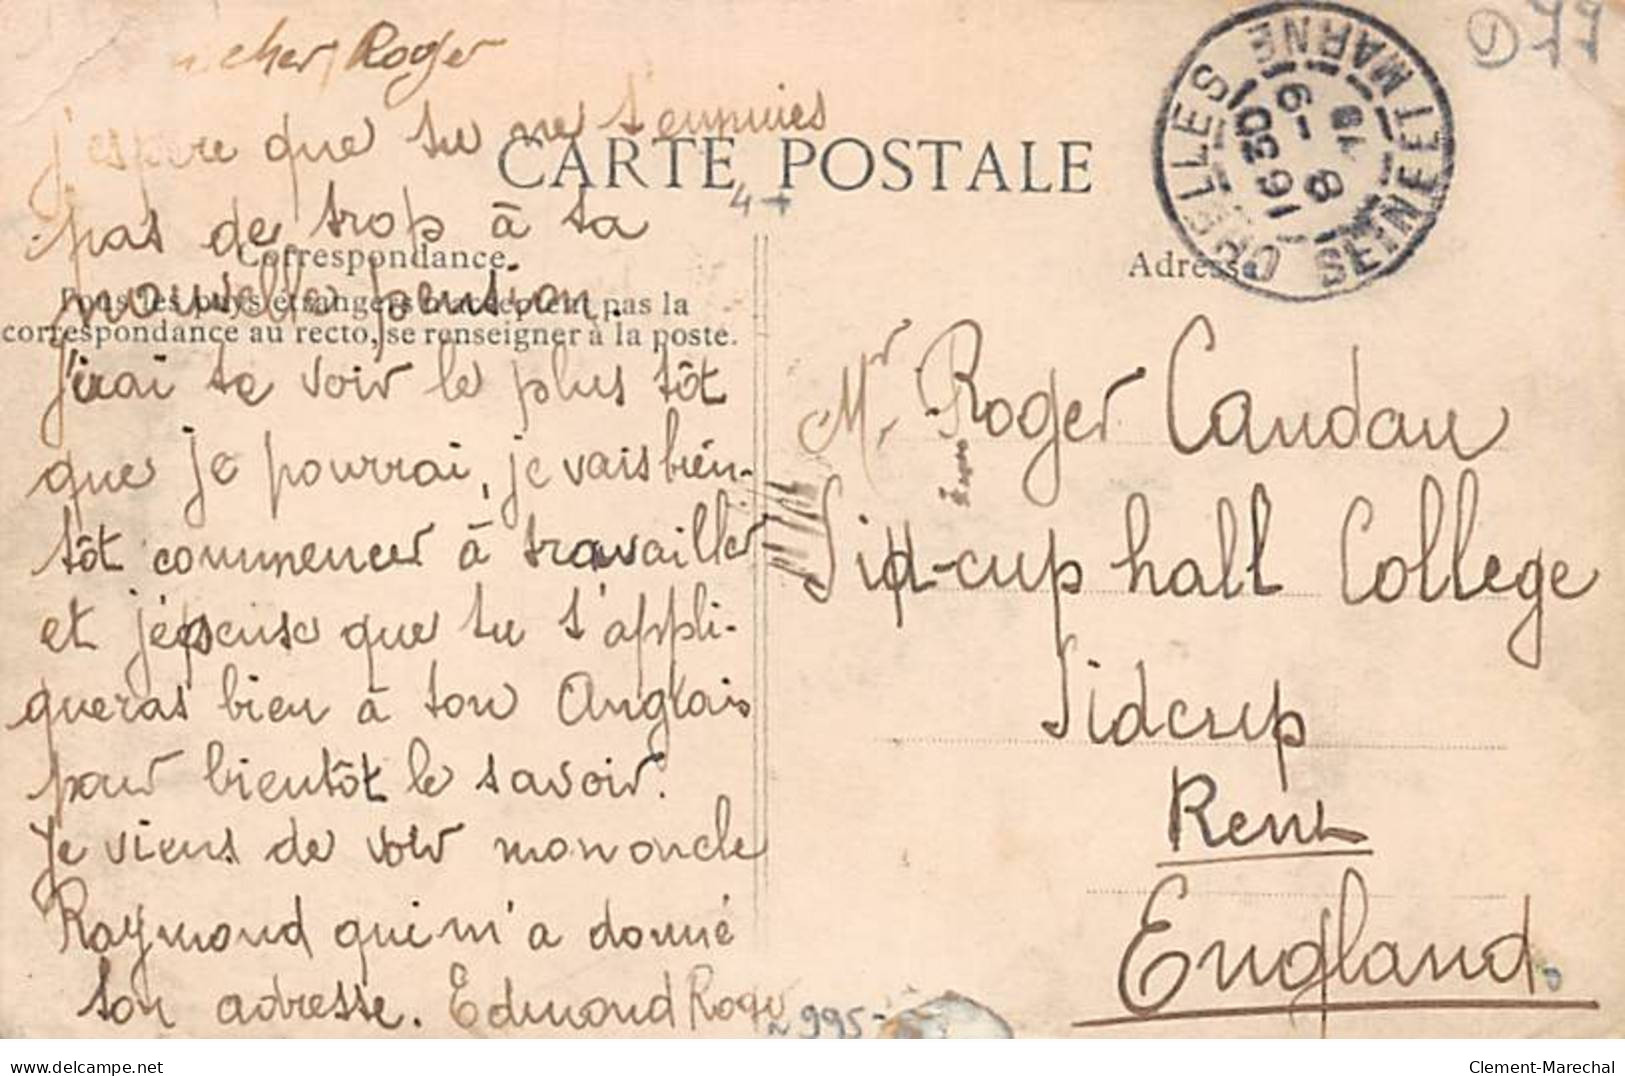 cher Roger
J'espère que tu ne t'ennuies
pas de trop à ta
nouvelle pension.
J'irai te voir le plus tôt
que je pourrai, je vais bien-
tôt commencer à travailler
et je pense que tu t'appli-
queras bien à ton Anglais
pour bientôt le savoir.
Je viens de voir mon oncle
Raymond qui m'a donné
ton adresse. Edmond Roger
CARTE POSTALE
Correspondance
Tous les pays étrangers n'acceptent pas la
correspondance au recto, se renseigner à la poste.
Adresse
SEINE ET MARNE
1630
6-8
Mr Roger Caudau
Sid-cup hall College
Sidcup
Kent
England
77
995
Clement-Marechal